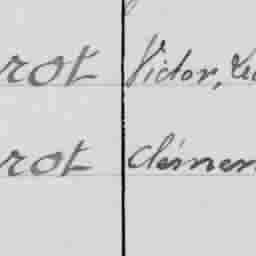 rot Victor, Lu
rot Clémen